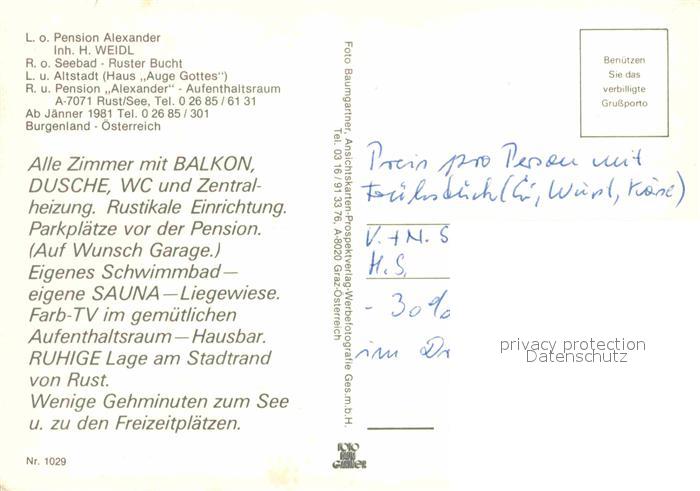 L. o. Pension Alexander
Inh. H. WEIDL
R. o. Seebad - Ruster Bucht
L. u. Altstadt (Haus „Auge Gottes")
R. u. Pension „Alexander" - Aufenthaltsraum
A-7071 Rust/See, Tel. 0 26 85 / 61 31
Ab Jänner 1981 Tel. 0 26 85 / 301
Burgenland - Österreich
Alle Zimmer mit BALKON,
DUSCHE, WC und Zentral-
heizung. Rustikale Einrichtung.
Parkplätze vor der Pension.
(Auf Wunsch Garage.)
Eigenes Schwimmbad —
eigene SAUNA — Liegewiese.
Farb-TV im gemütlichen
Aufenthaltsraum — Hausbar.
RUHIGE Lage am Stadtrand
von Rust.
Wenige Gehminuten zum See
u. zu den Freizeitplätzen.
Nr. 1029
Foto Baumgartner, Ansichtskarten-Prospektverlag-Werbefotografie Ges.m.b.H.
Tel. 03 16 / 91 33 76, A-8020 Graz-Österreich
FOTO
BAUM
GARTNER
Benützen
Sie das
verbilligte
Grußporto
Preis pro Person mit
Frühstück (Ei, Wurst, Käse)
V. + N. S
H. S.
- 30%
im Dr
privacy protection
Datenschutz